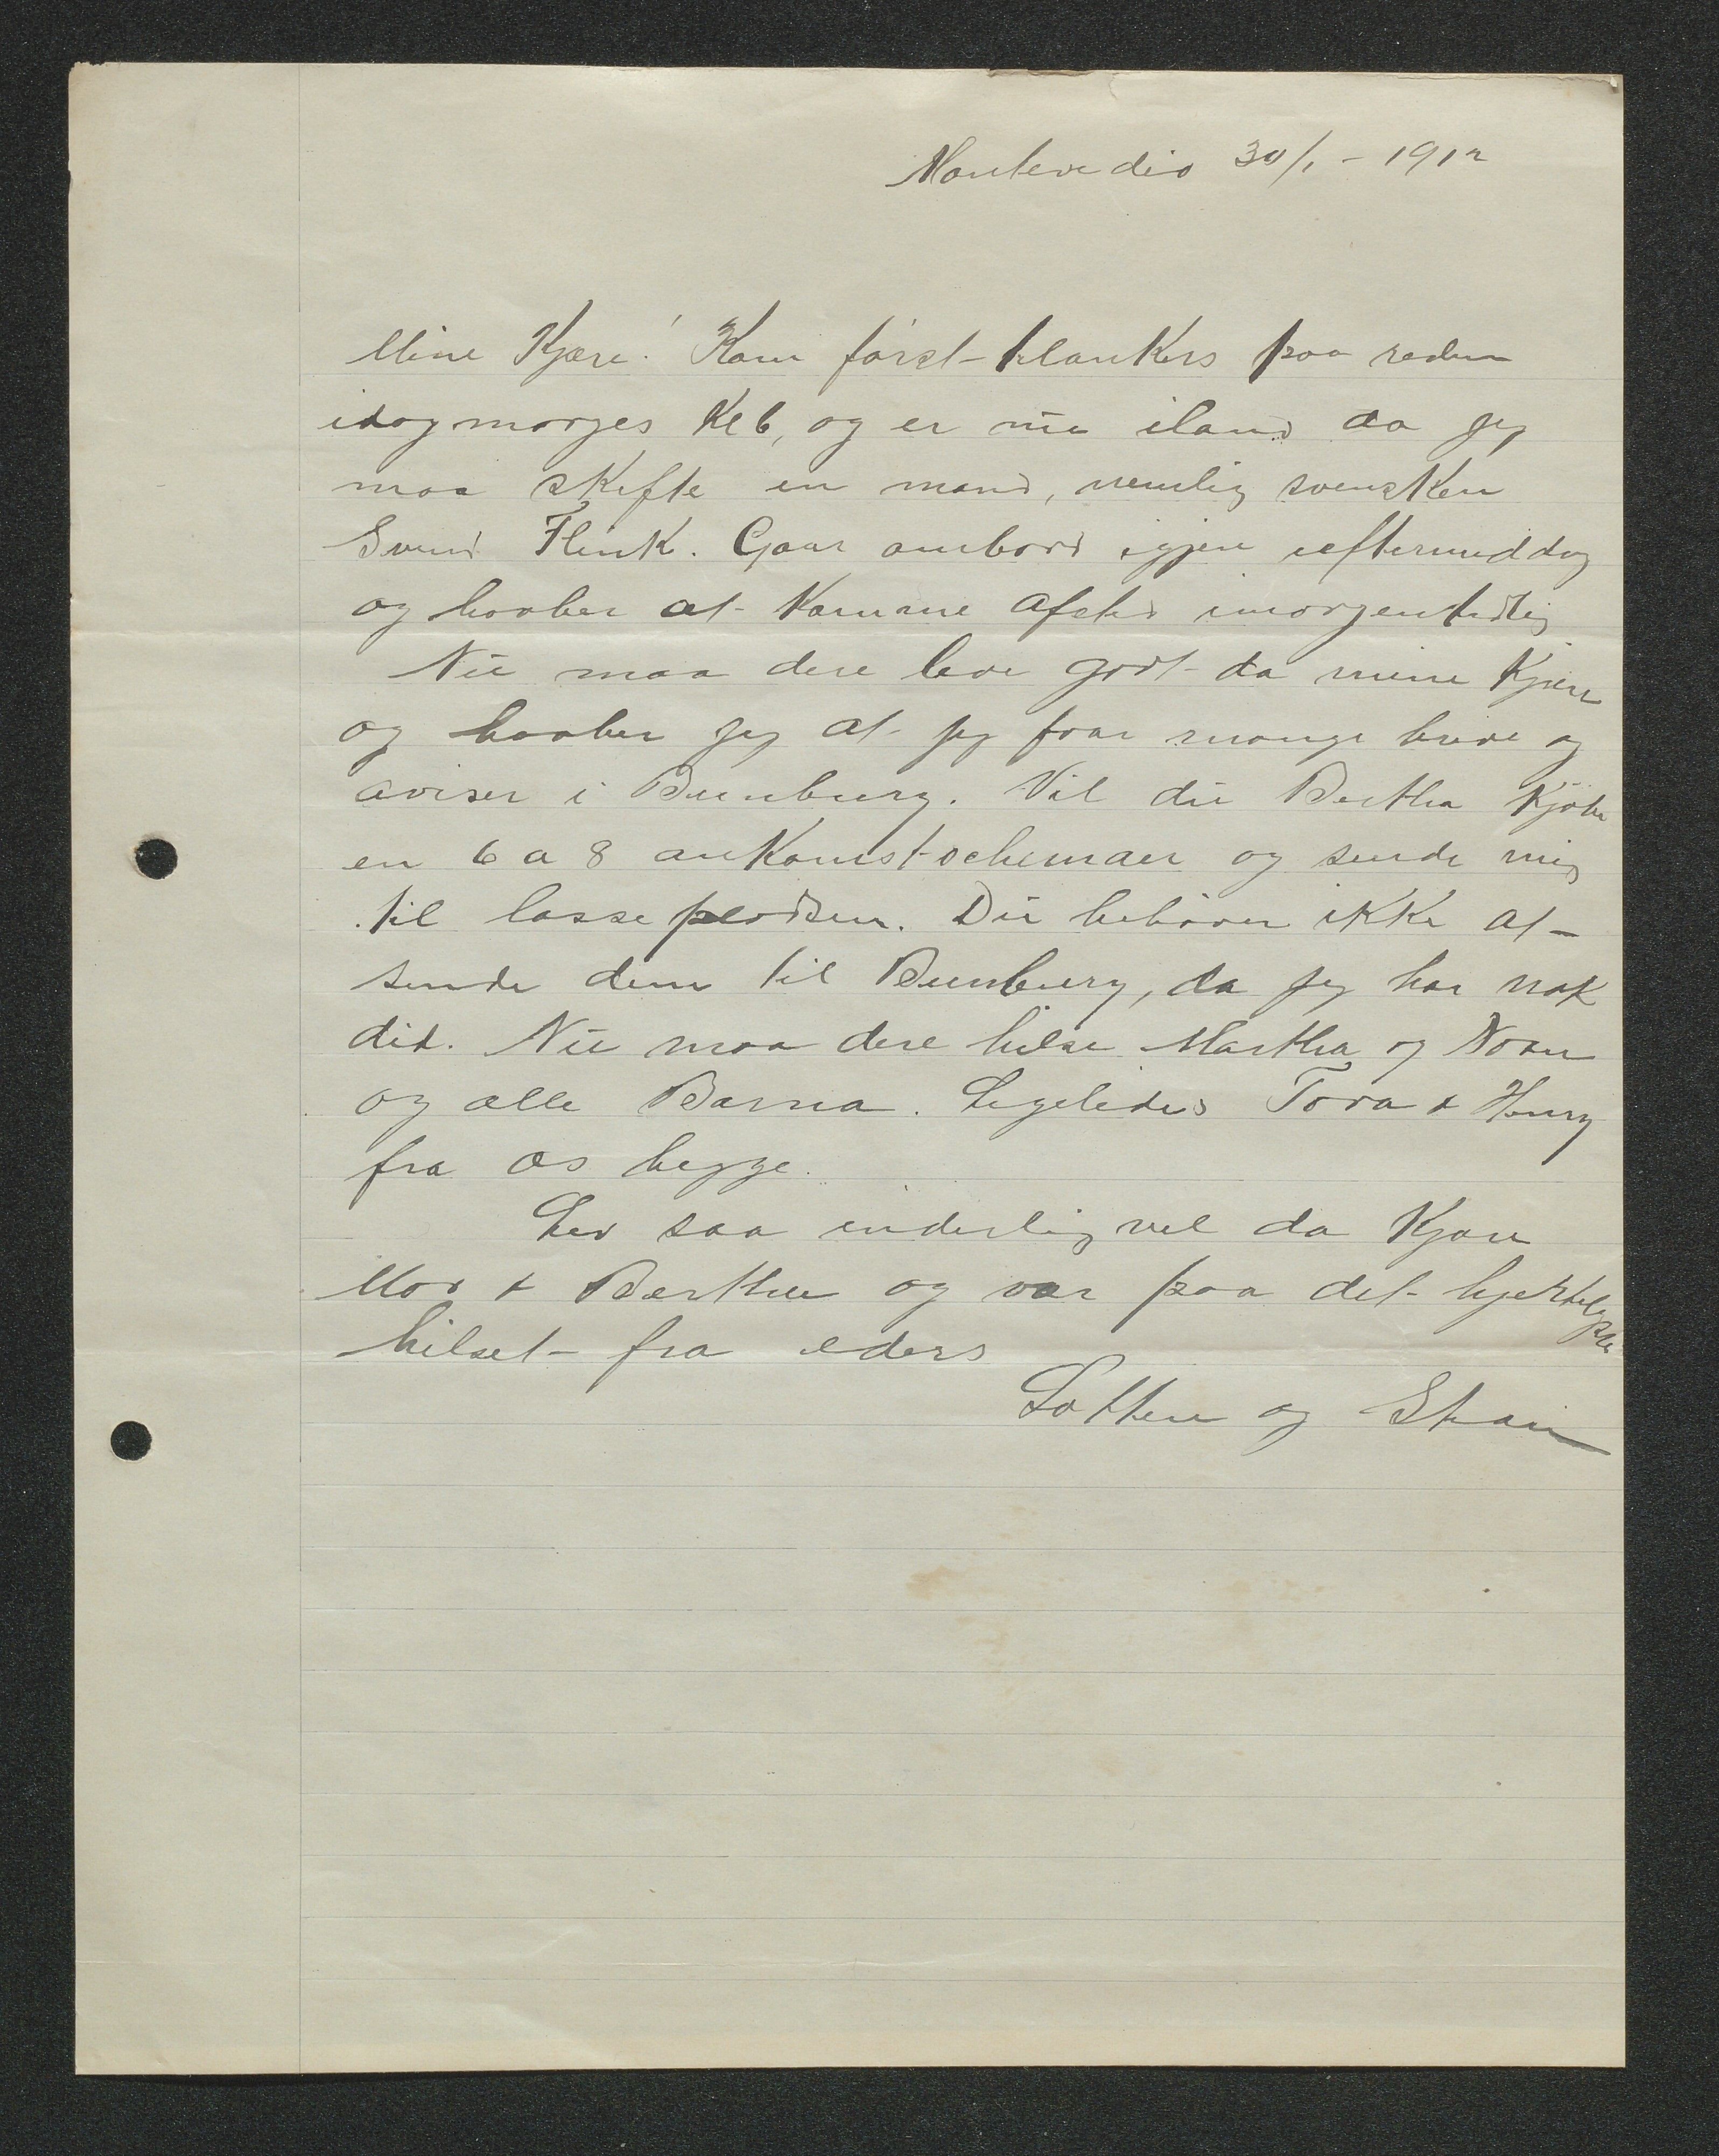 Montevedio 30/1 - 1912
Mine Kjære! Kom först tilankers paa reden
idag morges Kl 6, og er nu iland da jeg
maa skifte en mand, nemlig svensken
Svend Flink. Gaar ombord igjen ieftermiddag
og haaber at komme afsted imorgentidlig
Nu maa dere leve godt da mine Kjære
og haaber jeg at jeg faar mange breve og
aviser i Bunbury. Vil du Bertha Kjöbe
en 6 a 8 ankomst-schemaer og sende mig
til lasse pladsen. Du behöver ikke at
sende dem til Bunbury, da jeg har nok
dit. Nu maa dere hilse Martha og
og alle Barna. Ligeledes Tora & Henry
fra os begge.
Lev saa inderlig vel da Kjære
Mor & Berthe og vær paa det hjerteligste
hilset fra eders
Lotten og